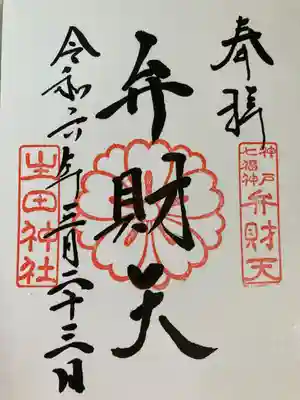 奉拝
神戸
七福神
弁財天
弁財天
生田神社
令和六年三月二十三日